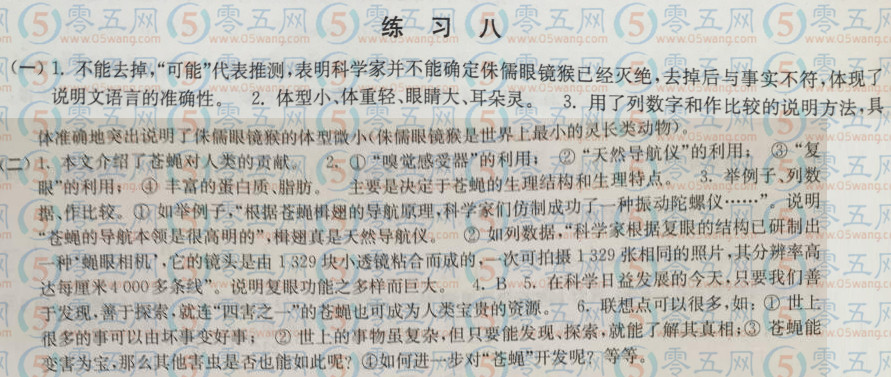 练 习 八
(一) 1. 不能去掉,“可能”代表推测,表明科学家并不能确定侏儒眼镜猴已经灭绝,去掉后与事实不符,体现了
说明文语言的准确性。 2. 体型小、体重轻、眼睛大、耳朵灵。 3. 用了列数字和作比较的说明方法,具
体准确地突出说明了侏儒眼镜猴的体型微小(侏儒眼镜猴是世界上最小的灵长类动物)。
(二) 1. 本文介绍了苍蝇对人类的贡献。 2. ①“嗅觉感受器”的利用; ②“天然导航仪”的利用; ③“复
眼”的利用; ④ 丰富的蛋白质、脂肪。 主要是决定于苍蝇的生理结构和生理特点。 3. 举例子、列数
据、作比较。① 如举例子,“根据苍蝇楫翅的导航原理,科学家们仿制成功了一种振动陀螺仪……”。说明
“苍蝇的导航本领是很高明的”,楫翅真是天然导航仪。 ② 如列数据,“科学家根据复眼的结构已研制出
一种‘蝇眼相机’,它的镜头是由 1 329 块小透镜粘合而成的,一次可拍摄 1 329 张相同的照片,其分辨率高
达每厘米 4 000 多条线”。说明复眼功能之多样而巨大。 4. B 5. 在科学日益发展的今天,只要我们善
于发现,善于探索,就连“四害之一”的苍蝇也可成为人类宝贵的资源。 6. 联想点可以很多,如: ① 世上
很多的事可以由坏事变好事; ② 世上的事物虽复杂,但只要能发现、探索,就能了解其真相;③ 苍蝇能
变害为宝,那么其他害虫是否也能如此呢? ④如何进一步对“苍蝇”开发呢? 等等。